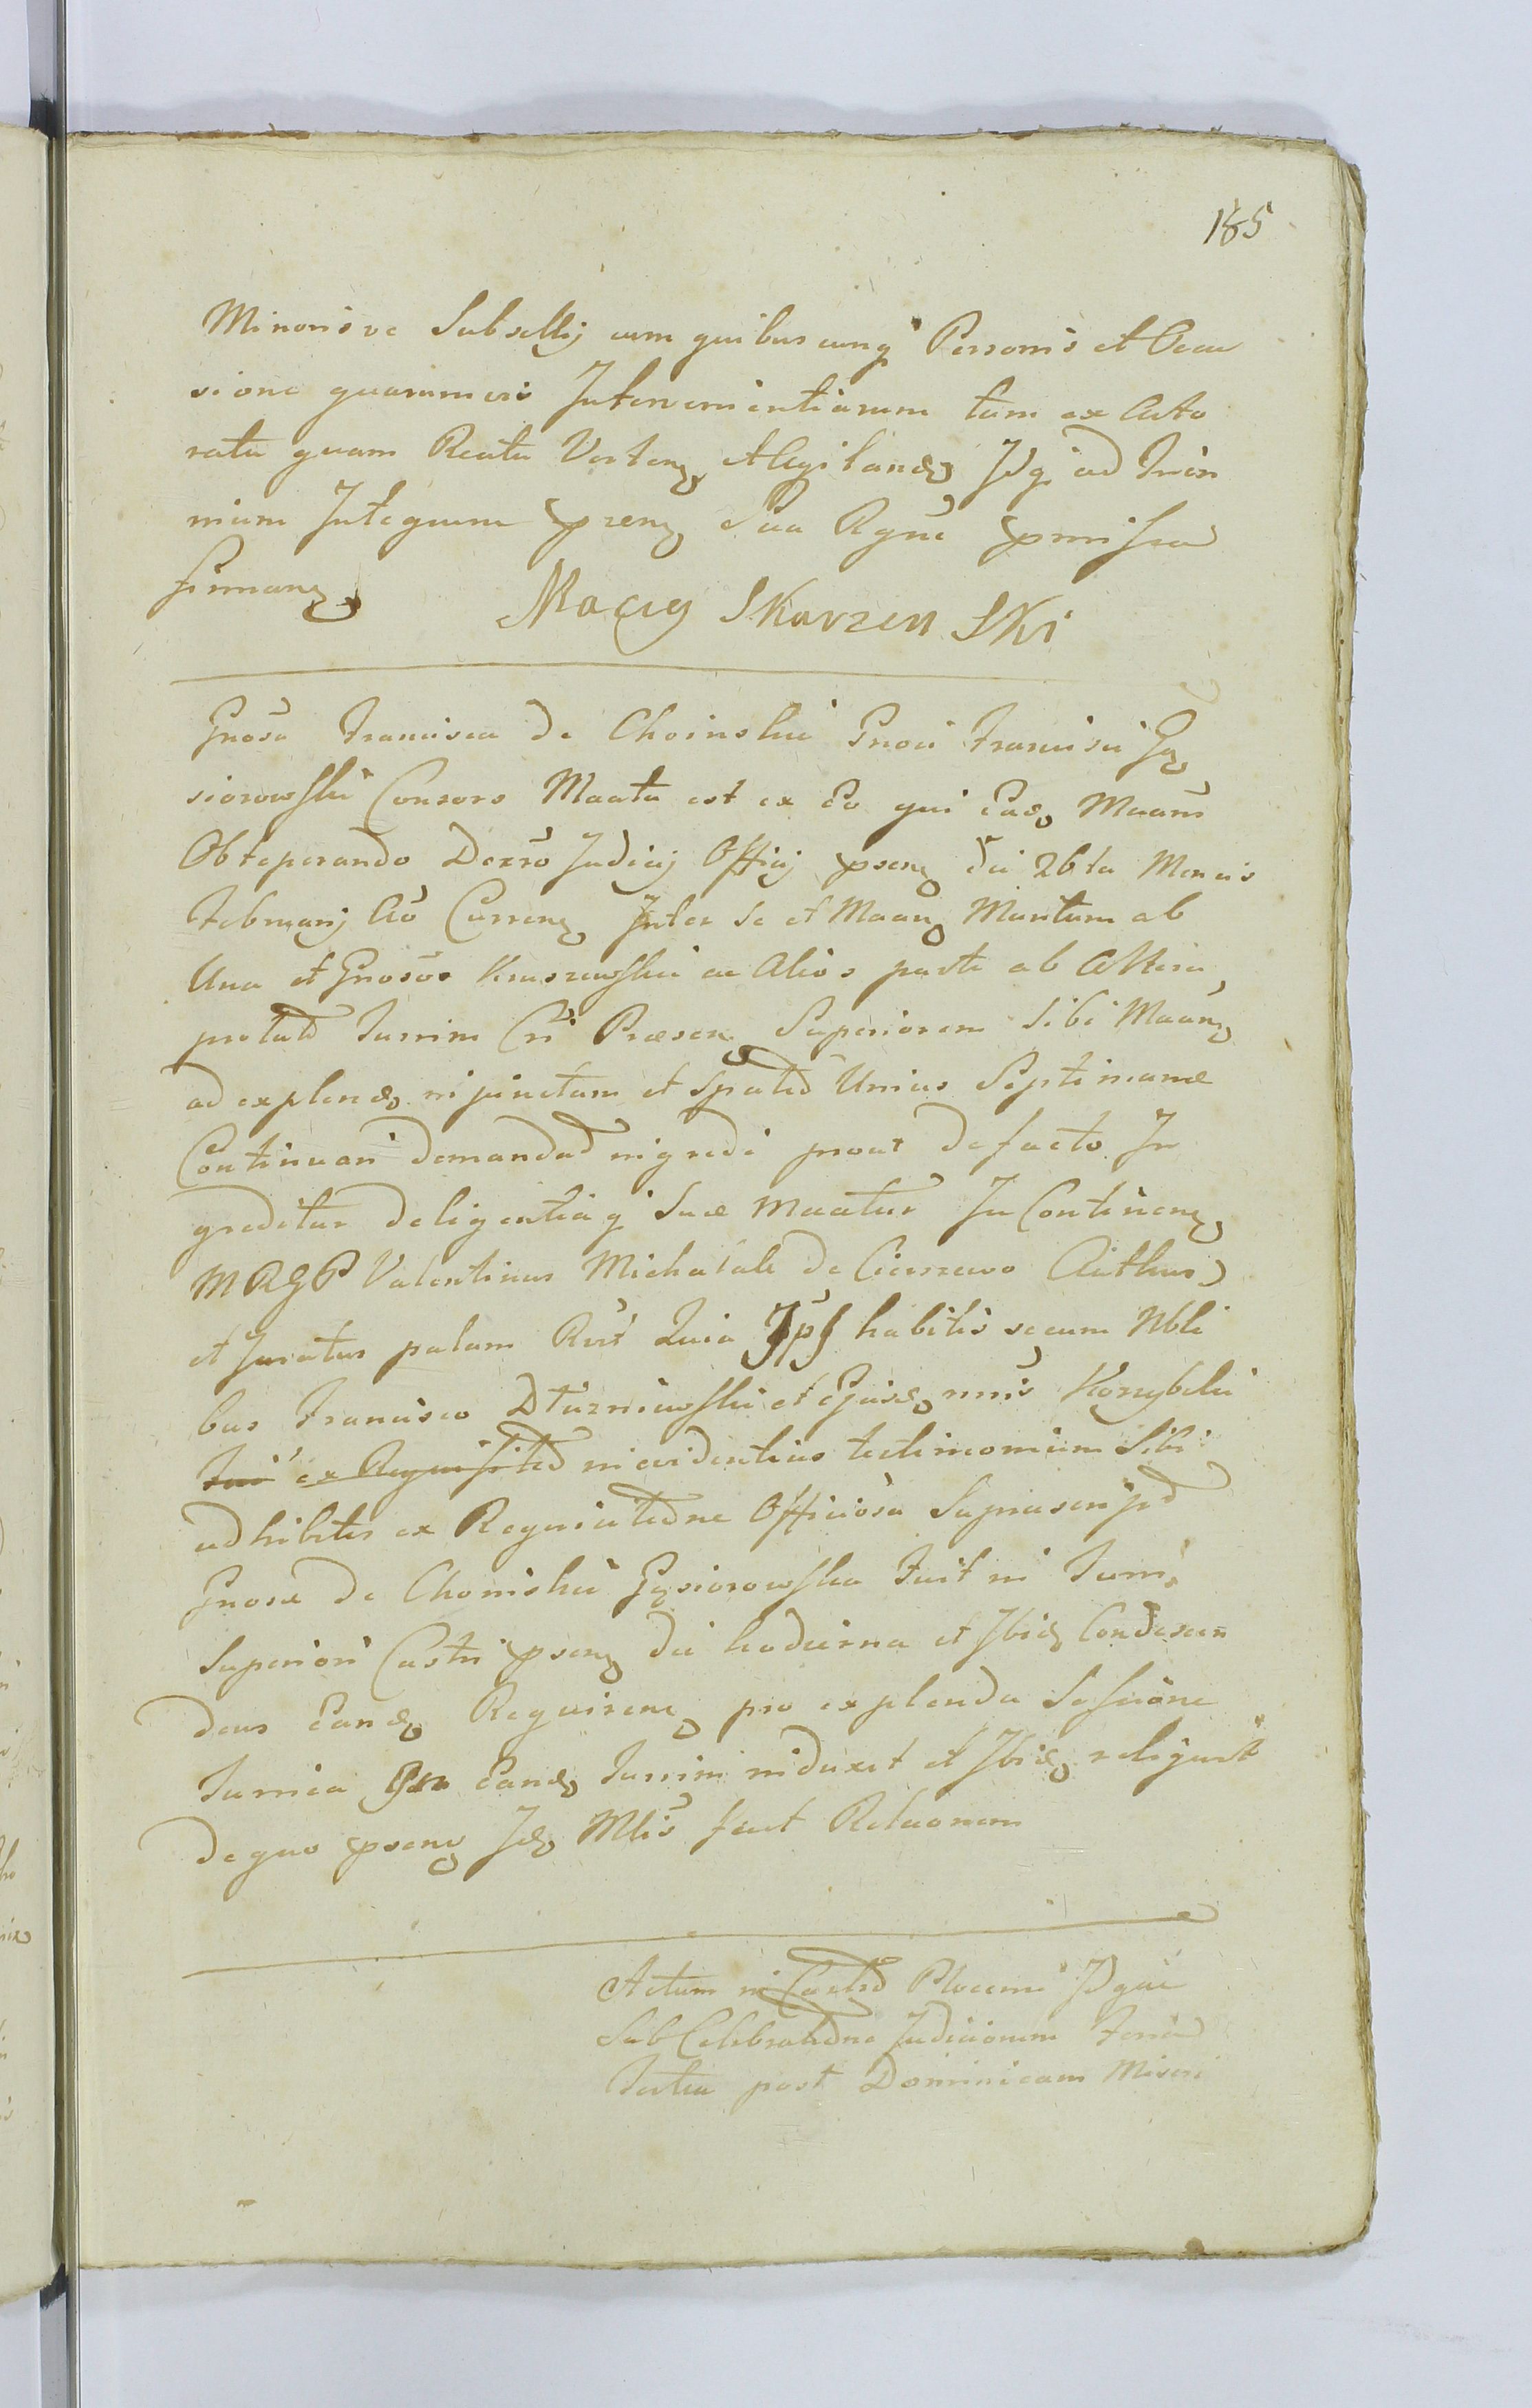 185
Minorisve Subsellij cum quibuscunq Personis et Occa
sione quarumvis Intervenientiarum tam ex Acto
ratu quam Reatu Verten et Agitand Idq ad Trien
nium Integrum praen Sua Rgne praemissa
firman
Maciey Skarzen Ski
Gnosa Francisca de Choinskie Gnoси Francisci Gą
siorowski Consors Maata est ex Eo qui Ead Maans
Obteperando Decreto Judicij Officij praen die 26ta Mensis
Februarij Ao Curren Inter se et Maan Maritum ab
Una et Gnosos Kruszewskie ac Alios parte ab Altera,
prolato Turrim Cri Praesen Superiorem Sibi Maan
ad explend injunctam et spatio Unius Septimanae
Continuari demandat ingredi prout de facto In
greditur deligentiaq Suae Maatur In Continen
MRGP Valentinus Michalak de Cierszewo Authus
et Juratus palam Rvit Quia Ips habitis secum Nbli
bus Francisco Dłuzniewski et Ejusd nnis Korzybski
ex Requisit in evidentius testimonium Sibi
adhibitis ex Requisitione Officiosa Suprascrip
Gnosae de Choinskie Gąsiorowska Fuit in Turri
Superiori Castri praen die hodierna et Ibid Condescen
dens Eand Requiren pro explenda Sessione
Turrica In Eand Turrim induxit et Ibid reliquit
de quo praen Id Mlis fecit Relaonem
Actum in Castro Plocensi Idque
Sub Celebratione Judiciorum Feria
Tertia post Dominicam Miseri